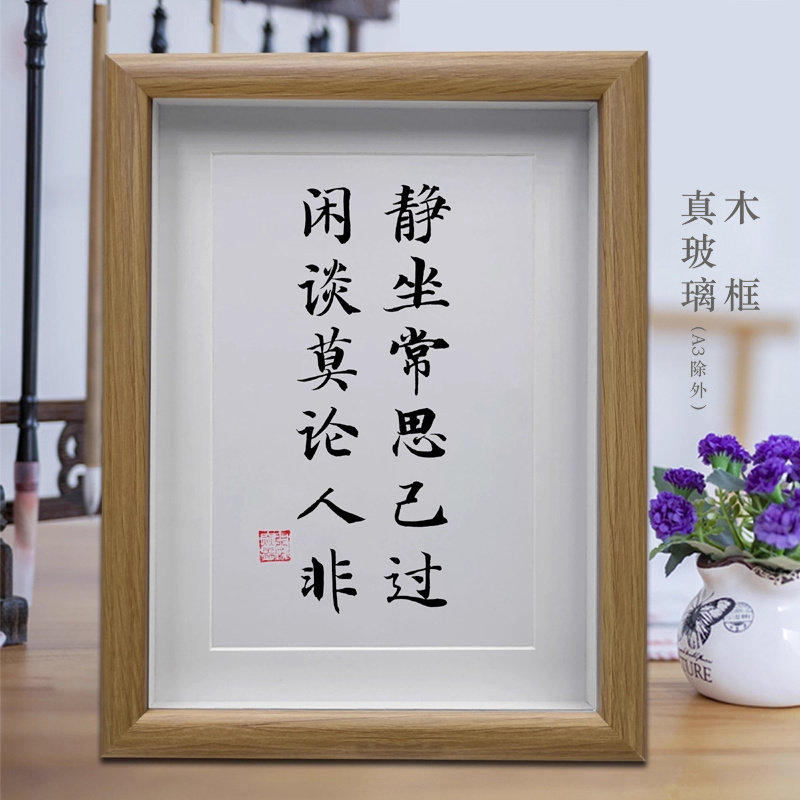 静坐常思己过
闲谈莫论人非
木框
真玻璃(A3除外)
NATURE